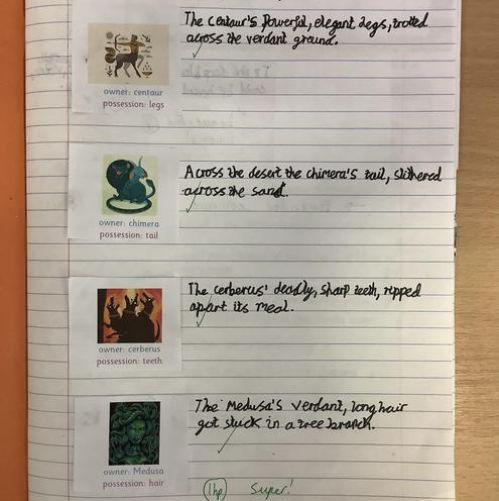 The centaur's powerful, elegant legs, trotted
across the verdant ground.
owner: centaur
possession: legs
Across the desert the chimera's tail, slithered
across the sand.
owner: chimera
possession: tail
The cerberus' deadly, sharp teeth, ripped
apart its meal.
owner: cerberus
possession: teeth
The Medusa's verdant, long hair
got stuck in a tree branch.
owner: Medusa
possession: hair
1hp Super!